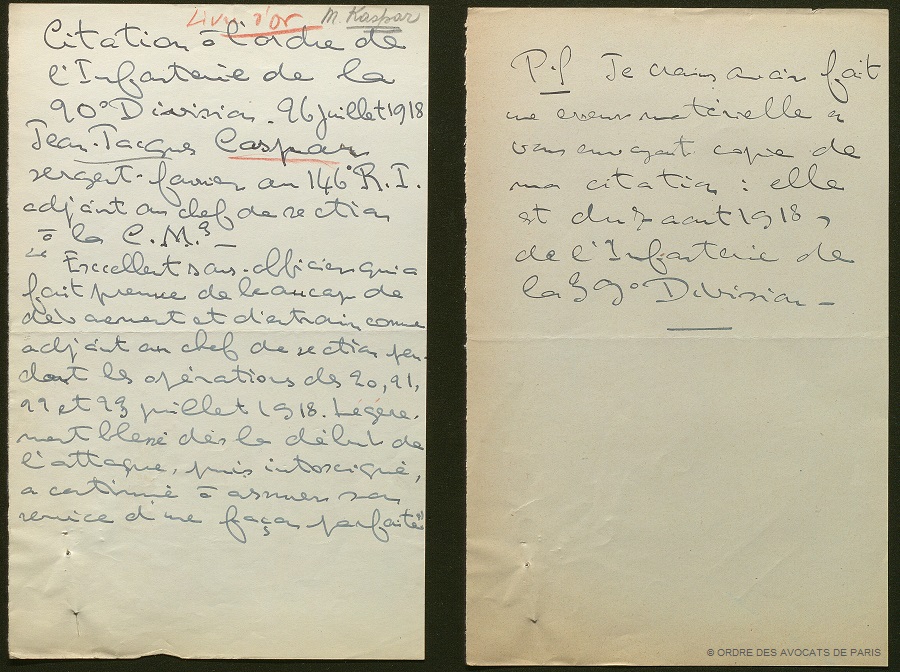 Livre d'or M. Kaspar
Citation à l'ordre de
l'Infanterie de la
90° Division. 26 juillet 1918
Jean-Jacques Caspar
sergent-fourrier au 146° R.I.
adjoint au chef de section
à la C.M.3 –
"Excellent sous-officier qui a
fait preuve de beaucoup de
dévouement et d'entrain comme
adjoint au chef de section pen-
dant les opérations des 20, 21,
22 et 23 juillet 1918. Légère-
ment blessé dès le début de
l'attaque, puis intoxiqué,
a continué à assurer son
service d'une façon parfaite"
P.S Je crains avoir fait
une erreur matérielle en
vous envoyant copie de
ma citation : elle
est du 7 aout 1918,
de l'Infanterie de
la 39° Division –
© ORDRE DES AVOCATS DE PARIS